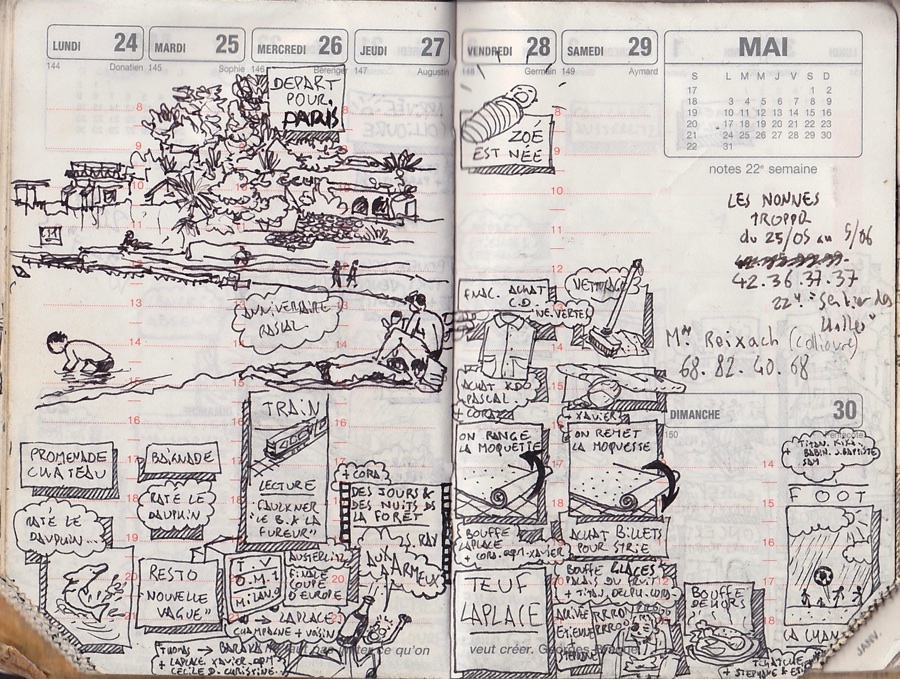 LUNDI 24
MARDI 25
MERCREDI 26
JEUDI 27
VENDREDI 28
SAMEDI 29
MAI
144 Donatien
145 Sophie
146 Bérenger
147 Augustin
148 Germain
149 Aymard
S L M M J V S D
17 1 2
18 3 4 5 6 7 8 9
19 10 11 12 13 14 15 16
20 17 18 19 20 21 22 23
21 24 25 26 27 28 29 30
22 31
notes 22e semaine
DEPART
POUR
PARIS
ANNIVERSAIRE
PASCAL
PROMENADE
CHATEAU
RATÉ LE
DAUPHIN...
BAIGNADE
RATÉ LE
DAUPHIN
RESTO
"NOUVELLE
VAGUE"
TRAIN
LECTURE
FAULKNER
"LE B. & LA
FUREUR"
T.V
O.M. 1
MILAN 0
FINALE
COUPE
D'EUROPE
→ LAPLACE
CHAMPAGNE + VOISIN
THOMAS →
+ LAPLACE XAVIER.
CECILE D. CHRISTINE.
+ CORA
DES JOURS &
DES NUITS DS
LA FORET
S. RAY
ce qu'on
ZOÉ
EST NÉE
FNAC. ACHAT
C.D.
ACHAT KDO
PASCAL.
+ CORA
ON RANGE
LA MOQUETTE
BOUFFE
LAPLACE
+ CORA. XAVIER
TEUF
LAPLACE
veut créer. Georges
NETTOYAGE
+ XAVIER
ON REMET
LA MOQUETTE
ACHAT BILLETS
POUR
BOUFFE GLACES
PALAIS DU FRUIT
+ TITAN, CORA
LES NONNES
TROPPO
du 25/05 au 5/06
42.36.37.37
Reixach (Collioure)
68.82.40.68
DIMANCHE 30
150
BOUFFE
DEHORS
+ TITAN. KIKI.
BABIN. J. BAPTISTE
SAM
FOOT
+ STEPHANE &
JANV.
8
9
10
11
12
13
14
15
16
17
18
19
20
21